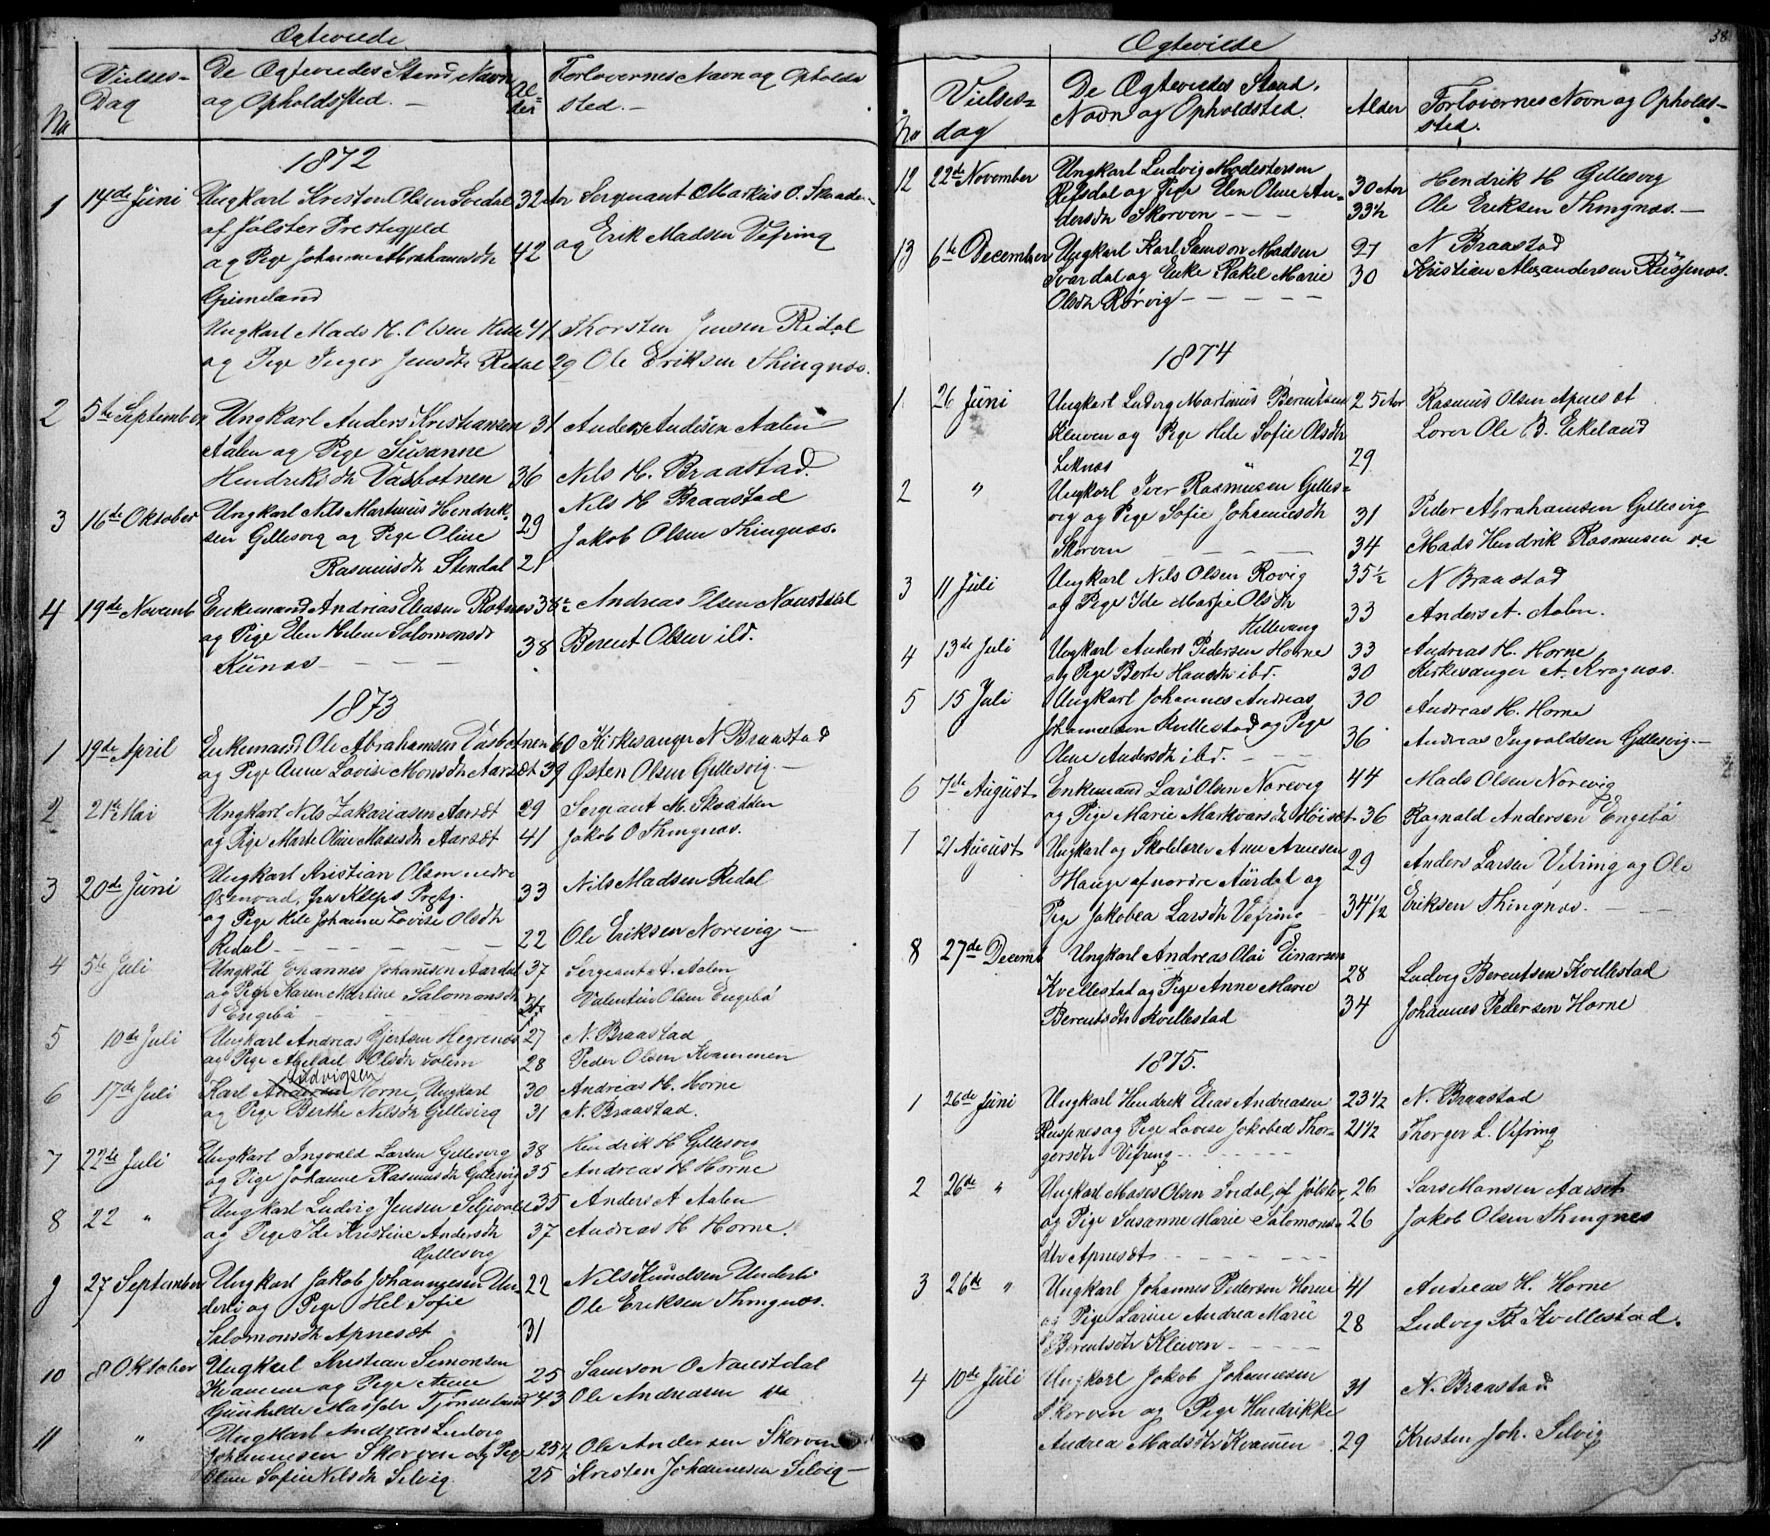 Ægteviede
No
Vielses-
Dag
De Ægteviedes Stand, Navn
og Opholdssted. —
Al-
der
Forlovernes Navn og Opholds
sted. —
1872
1 14de Juni Ungkarl Kresten Olsen Svedal 32 Aar Sergeant Markus O. Skaade-
af Jølster Prestegjeld
og Pige Johanne Abrahamsdtr 42 og Erik Madsen Vefring
Grimeland
Ungkarl Mads M. Olsen Helle 41 Thorsten Jensen Redal
og Pige Inger Jensdtr Redal 29 Ole Eriksen Thingnæs.
2 5te September Ungkarl Anders Kristiansen 31 Anders Andesen Aalen
Aalen og Pige Susanne
Hendriksdtr Vasbotnen 36 Nils H. Braastad.
3 16de Oktober Ungkarl Nils Martinus Hendrik- 29 Nils H Braastad
sen Gillesvig og Pige Oline Jakob Olsen Thingnæs.
Rasmusdtr Stendal 21
4 19de Novemb Enkemand Andreas Eleasen Rotnes 38½ Andreas Olsen Naustdal
og Pige Elen Helene Salomonsdt 38 Berent Olsen ibd.
Kunæs — — — —
1873
1 19de April Enkemand Ole Abrahamsen Vasbotnen 60 Kirkesanger N Braastad
og Pige Anne Lovise Monsdtr Aarsæt 39 Østen Olsen Gillesvig. —
2 21de Mai Ungkarl Nils Zakariasen Aarsæt 29 Sergeant M. Skaadden
og Pige Marte Oline Mosesdtr Aarsæt 41 Jakob O Thingnæs.
3 20de Juni Ungkarl Kristian Olsen nedre 33 Nils Madsen Redal
og Pige Hele Johanne Lovise Olsdtr
Redal — — — — 22 Ole Eriksen Norevig —
4 5te Juli Ungkarl Johannes Johansson Aardal 37 Sergeant A. Aalen
og Pige Karen Martine Salomonsdtr Valentin Olsen Engebø
Engebø
5 10de Juli Ungkarl Andreas Gjertsen Hegrenæs 27 N. Braastad
og Pige Abelail Olsdtr Solem 28 Peder Olsen Kvammen
Ludvigsen
6 17de Juli Karl Andersen Horne, Ungkarl 30 Andreas H. Horne
og Pige Berthe Nilsdtr Gillesvig 31 N. Braastad.
7 22de Juli Ungkarl Ingvald Larsen Gillesvig 38 Hendrik H Gillesvig
og Pige Johanne Rasmusdtr Gillesvig 35 Andreas H Horne
8 22 " Ungkarl Ludvig Jensen Seljevold 35 Anders A Aalen
og Pige Ide Kristine Andersdtr 37 Andreas H Horne.
Gillesvig
9 27 September Ungkarl Jakob Johannesen Un- 22 Nils Knudsen Underli
derli og Pige Hel Sofie Ole Eriksen Thingnæs.
Salomonsdtr Apnesæt 31
10 8 Oktober Ungkarl Kristian Simonsen 25 Samson O Naustdal
Kvamme og Pige Anne
Gunhilde Madsdtr Tjønneland 43 Ole Andreasen
11 " Ungkarl Andreas Ludvig
Johannesen Skorven og Pige 25½ Ole Andersen Skorven
Oline Sofie Nilsdtr Selvig. 25 Kristen Johannesen Selvig —
Ægteviede
38
No
Vielses-
dag
De Ægteviedes Stand,
Navn og Opholdsted.
Alder
Forlovernes Navn og Opholds-
sted.
12 22de November Ungkarl Ludvig Modestersen
Refsdal og Pige Elen Oline An- 30 Aar Hendrik H Gillesvig
dersdtr Skorven — — — 33½ Ole Eriksen Thingnæs. —
13 6te December Ungkarl Karl Samson Madsen 27 N Braastad
Svardal og Enke Rakel Marie 30 Kristian Alexandersen Risnæs.
Olsdtr Rørvig — — — —
1874
1 26 Juni Ungkarl Ludvig Martinus Berentsen 25 Aar Rasmus Olsen Apnesæt
Kleven og Pige Hele Sofie Olsdtr Lærer Ole B. Eikeland
Leknæs 29
2 " Ungkarl Iver Rasmusen Gilles-
vig og Pige Sofie Johannesdtr 31 Peder Abrahamsen Gillesvig
Skorven — — — 34 Mads Hendrik Rasmusen
3 11 Juli Ungkarl Nils Olsen Rovig 35½ N Braastad
og Pige Ide Marie Olsdtr 33 Anders A. Aalen.
Hellevang
4 13de Juli Ungkarl Anders Pedersen Horne 33 Andreas H. Horne
og Pige Berte Hansdtr ibd. 30 Kirkesanger A. Kragnæs.
5 15 Juli Ungkarl Johannes Andreas 30 Andreas H. Horne
Johannesen Kvellestad og Pige
Oline Andersdtr ibd. — — 36 Andreas Ingvaldsen Gillesvig. —
6 7de August Enkemand Lars Olsen Norevig 44 Mads Olsen Norevig
og Pige Marie Markvarsdtr Høisæt 36 Ragnald Andersen Engebø
7 21 August Ungkarl og Skolelærer Arne Arnesen 29 Anders Larsen Vefring og Ole
Hauge af nordre Aurdal og
Pige Jakobea Larsdtr Vefring 34½ Eriksen Thingnæs. — — —
8 27de Decemb Ungkarl Andreas Olai Einarsen
Kvellestad og Pige Anne Marie 28 Ludvig Berentsen Kvellestad
Berentsdtr Kvellestad 34 Johannes Pedersen Horne
1875.
1 26de Juni Ungkarl Hendrik Elias Andreasen 23½ N. Braastad
og Pige Lovise Jakobed Thor- 21½ Thorger L. Vefring
gersdtr Vefring — — — —
2 26de " Ungkarl Moses Olsen Svedal, af Jølster, 26 Lars Monsen Aarset
og Pige Susanne Marie Salomons- 26 Jakob Olsen Thingnes
dtr Apnesæt — — — —
3 26de " Ungkarl Johannes Pederson Horne 41 Andreas H. Horne
og Pige Larine Andrea Marie 28 Ludvig B Kvellestad.
Berentsdtr Kleven — — — —
4 10de Juli Ungkarl Jakob Johannesen 31 N. Braastad
Skorven og Pige Hendrikke
Andrea Madsdtr Kvamen 29 Kristen Joh. Selvig